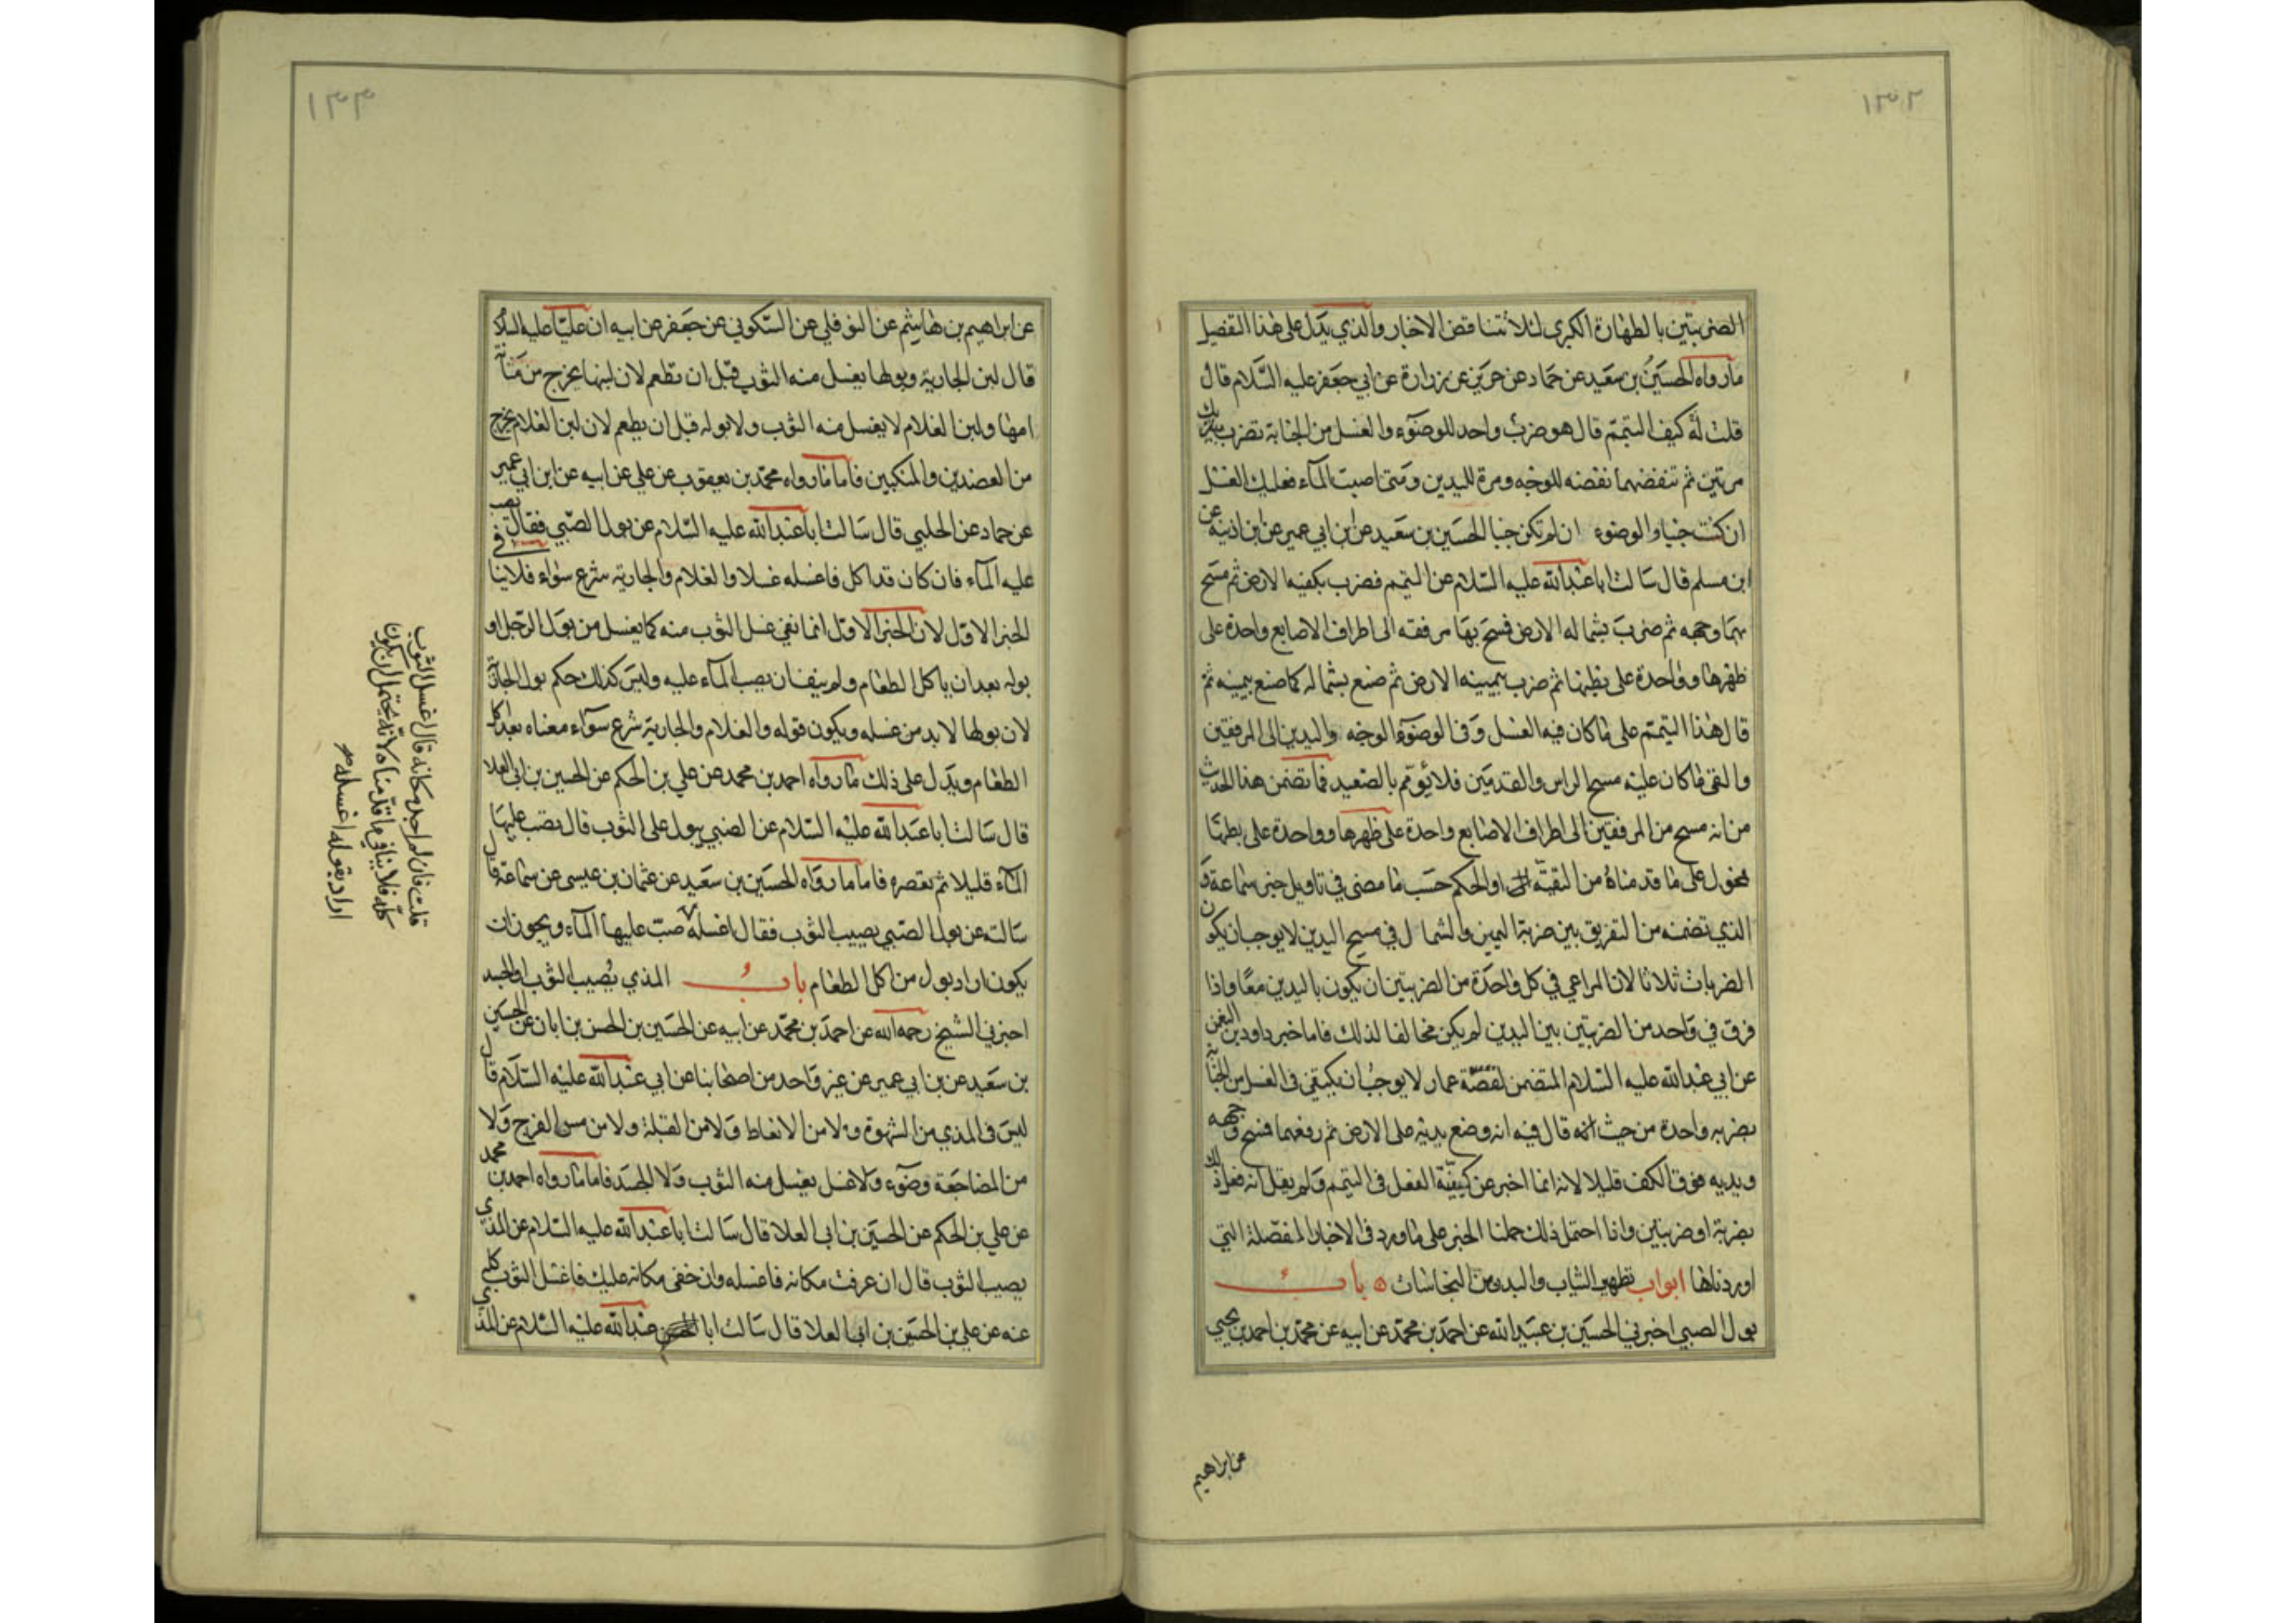 ١٣٢
الضربتين بالطهارة الكبرى لئلا تتناقض الاخبار والذي يدل على هذا التفصيل
ما رواه الحسين بن سعيد عن حماد عن حريز عن زرارة عن ابي جعفر عليه السلام قال
قلت له كيف التيمم قال هو ضرب واحد للوضوء والغسل من الجنابة تضرب بيديك
مرتين ثم تنفضهما نفضه للوجه ومرة لليدين ومتى اصبت الماء فعليك الغسل
ان كنت جنبا والوضوء ان لم تكن جنبا الحسين بن سعيد عن ابن ابي عمير عن ابن اذينة عن
ابن مسلم قال سالت ابا عبد الله عليه السلام عن التيمم فضرب بكفيه الارض ثم مسح
بهما وجهه ثم ضرب بشماله الارض فمسح بها مرفقه الى اطراف الاصابع واحدة على
ظهرها وواحدة على بطنها ثم ضرب بيمينه الارض ثم صنع بشماله كما صنع بيمينه ثم
قال هذا التيمم على ما كان فيه الغسل وفى الوضوء الوجه واليدين الى المرفقين
والقى ما كان عليه مسح الراس والقدمين فلا يؤمم بالصعيد فما تضمن هذا الحديث
من انه مسح من المرفقين الى اطراف الاصابع واحدة على ظهرها وواحدة على بطنها
محمول على ما قدمناه من التقية او الحكم حسب ما مضى في تاويل خبر سماعة و
الذي تضمنه من التفريق بين ضربة اليمين والشمال في مسح اليدين لا يوجب ان يكون
الضربات ثلاثا لان المراعي في كل واحدة من الضربتين ان يكون باليدين معًا واذا
فرق في واحد من الضربتين بين اليدين لم يكن مخالفا لذلك فاما خبر داود بن النعمن
عن ابي عبد الله عليه السلام المتضمن لقصة عمار لا يوجب ان يكتفى فى الغسل من الجنابة
بضربه واحدة من حيث انه قال فيه انه وضع يديه على الارض ثم رفعهما فمسح وجهه
ويديه فوق الكف قليلا لانه انما اخبر عن كيفية الفعل فى التيمم ولم يقل انه فعل ذلك
بضربة او ضربتين واذا احتمل ذلك حملنا الخبر على ما ورد فى الاخبار المفصلة التي
اوردناها ابواب تطهير الثياب والبدن من النجاسات ه باب
بول الصبي اخبرني الحسين بن عبيد الله عن احمد بن محمد عن ابيه عن محمد بن احمد بن يحيي
عن ابراهيم
١٣٣
عن ابراهيم بن هاشم عن النوفلي عن السكوني عن جعفر عن ابيه ان عليًا عليه السلام
قال لبن الجارية وبولها يغسل منه الثوب قبل ان تطعم لان لبنها يخرج من مثانة
امها ولبن الغلام لا يغسل منه الثوب ولا بوله قبل ان يطعم لان لبن الغلام يخرج
من العضدين والمنكبين فاما ما رواه محمد بن يعقوب عن علي عن ابيه عن ابن ابي عمير
عن حماد عن الحلبي قال سالت ابا عبد الله عليه السلام عن بول الصبي فقال تصب
عليه الماء فان كان قد اكل فاغسله غسلا والغلام والجارية شرع سواء فلا ينافي
الخبر الاول لان الخبر الاول انما نفى غسل الثوب منه كما يغسل من بول الرجل او
بوله بعد ان ياكل الطعام ولم ينف ان يصب الماء عليه وليس كذلك حكم بول الجارية
لان بولها لا بد من غسله ويكون قوله والغلام والجارية شرع سواء معناه بعد اكل
الطعام ويدل على ذلك ما رواه احمد بن محمد عن علي بن الحكم عن الحسين بن ابي العلا
قال سالت ابا عبد الله عليه السلام عن الصبي يبول على الثوب قال يصب عليها
الماء قليلا ثم يعصره فاما ما رواه الحسين بن سعيد عن عثمان بن عيسى عن سماعة قال
سالته عن بول الصبي يصيب الثوب فقال اغسله صبّ عليها الماء ويجوز ان
يكون اراد بول من اكل الطعام باب المذي يُصيب الثوب او الجسد
اخبرني الشيخ رحمه الله عن احمد بن محمد عن ابيه عن الحسين بن الحسن بن ابان عن الحسين
بن سعيد عن بن ابي عمير عن غير واحد من اصحابنا عن ابي عبد الله عليه السلام قال
ليس فى المذي من الشهوة ولا من الانعاط ولا من القبلة ولا من مس الفرج ولا
من المضاجعة وضوء ولا غسل يغسل منه الثوب ولا الجسد فاما ما رواه احمد بن محمد
عن علي بن الحكم عن الحسين بن ابى العلا قال سالت ابا عبد الله عليه السلام عن المذي
يصيب الثوب قال ان عرفت مكانه فاغسله وان خفى مكانه عليك فاغسل الثوب كله
عنه عن علي بن الحسين بن ابى العلا قال سالت ابا عبد الله عليه السلام عن المذي
قلت فان لم اجد مكانه قال اغسل الثوب
كله فلا ينافي ما قدمناه لانه يحتمل ان يكون
اراد بقوله اغسله صح